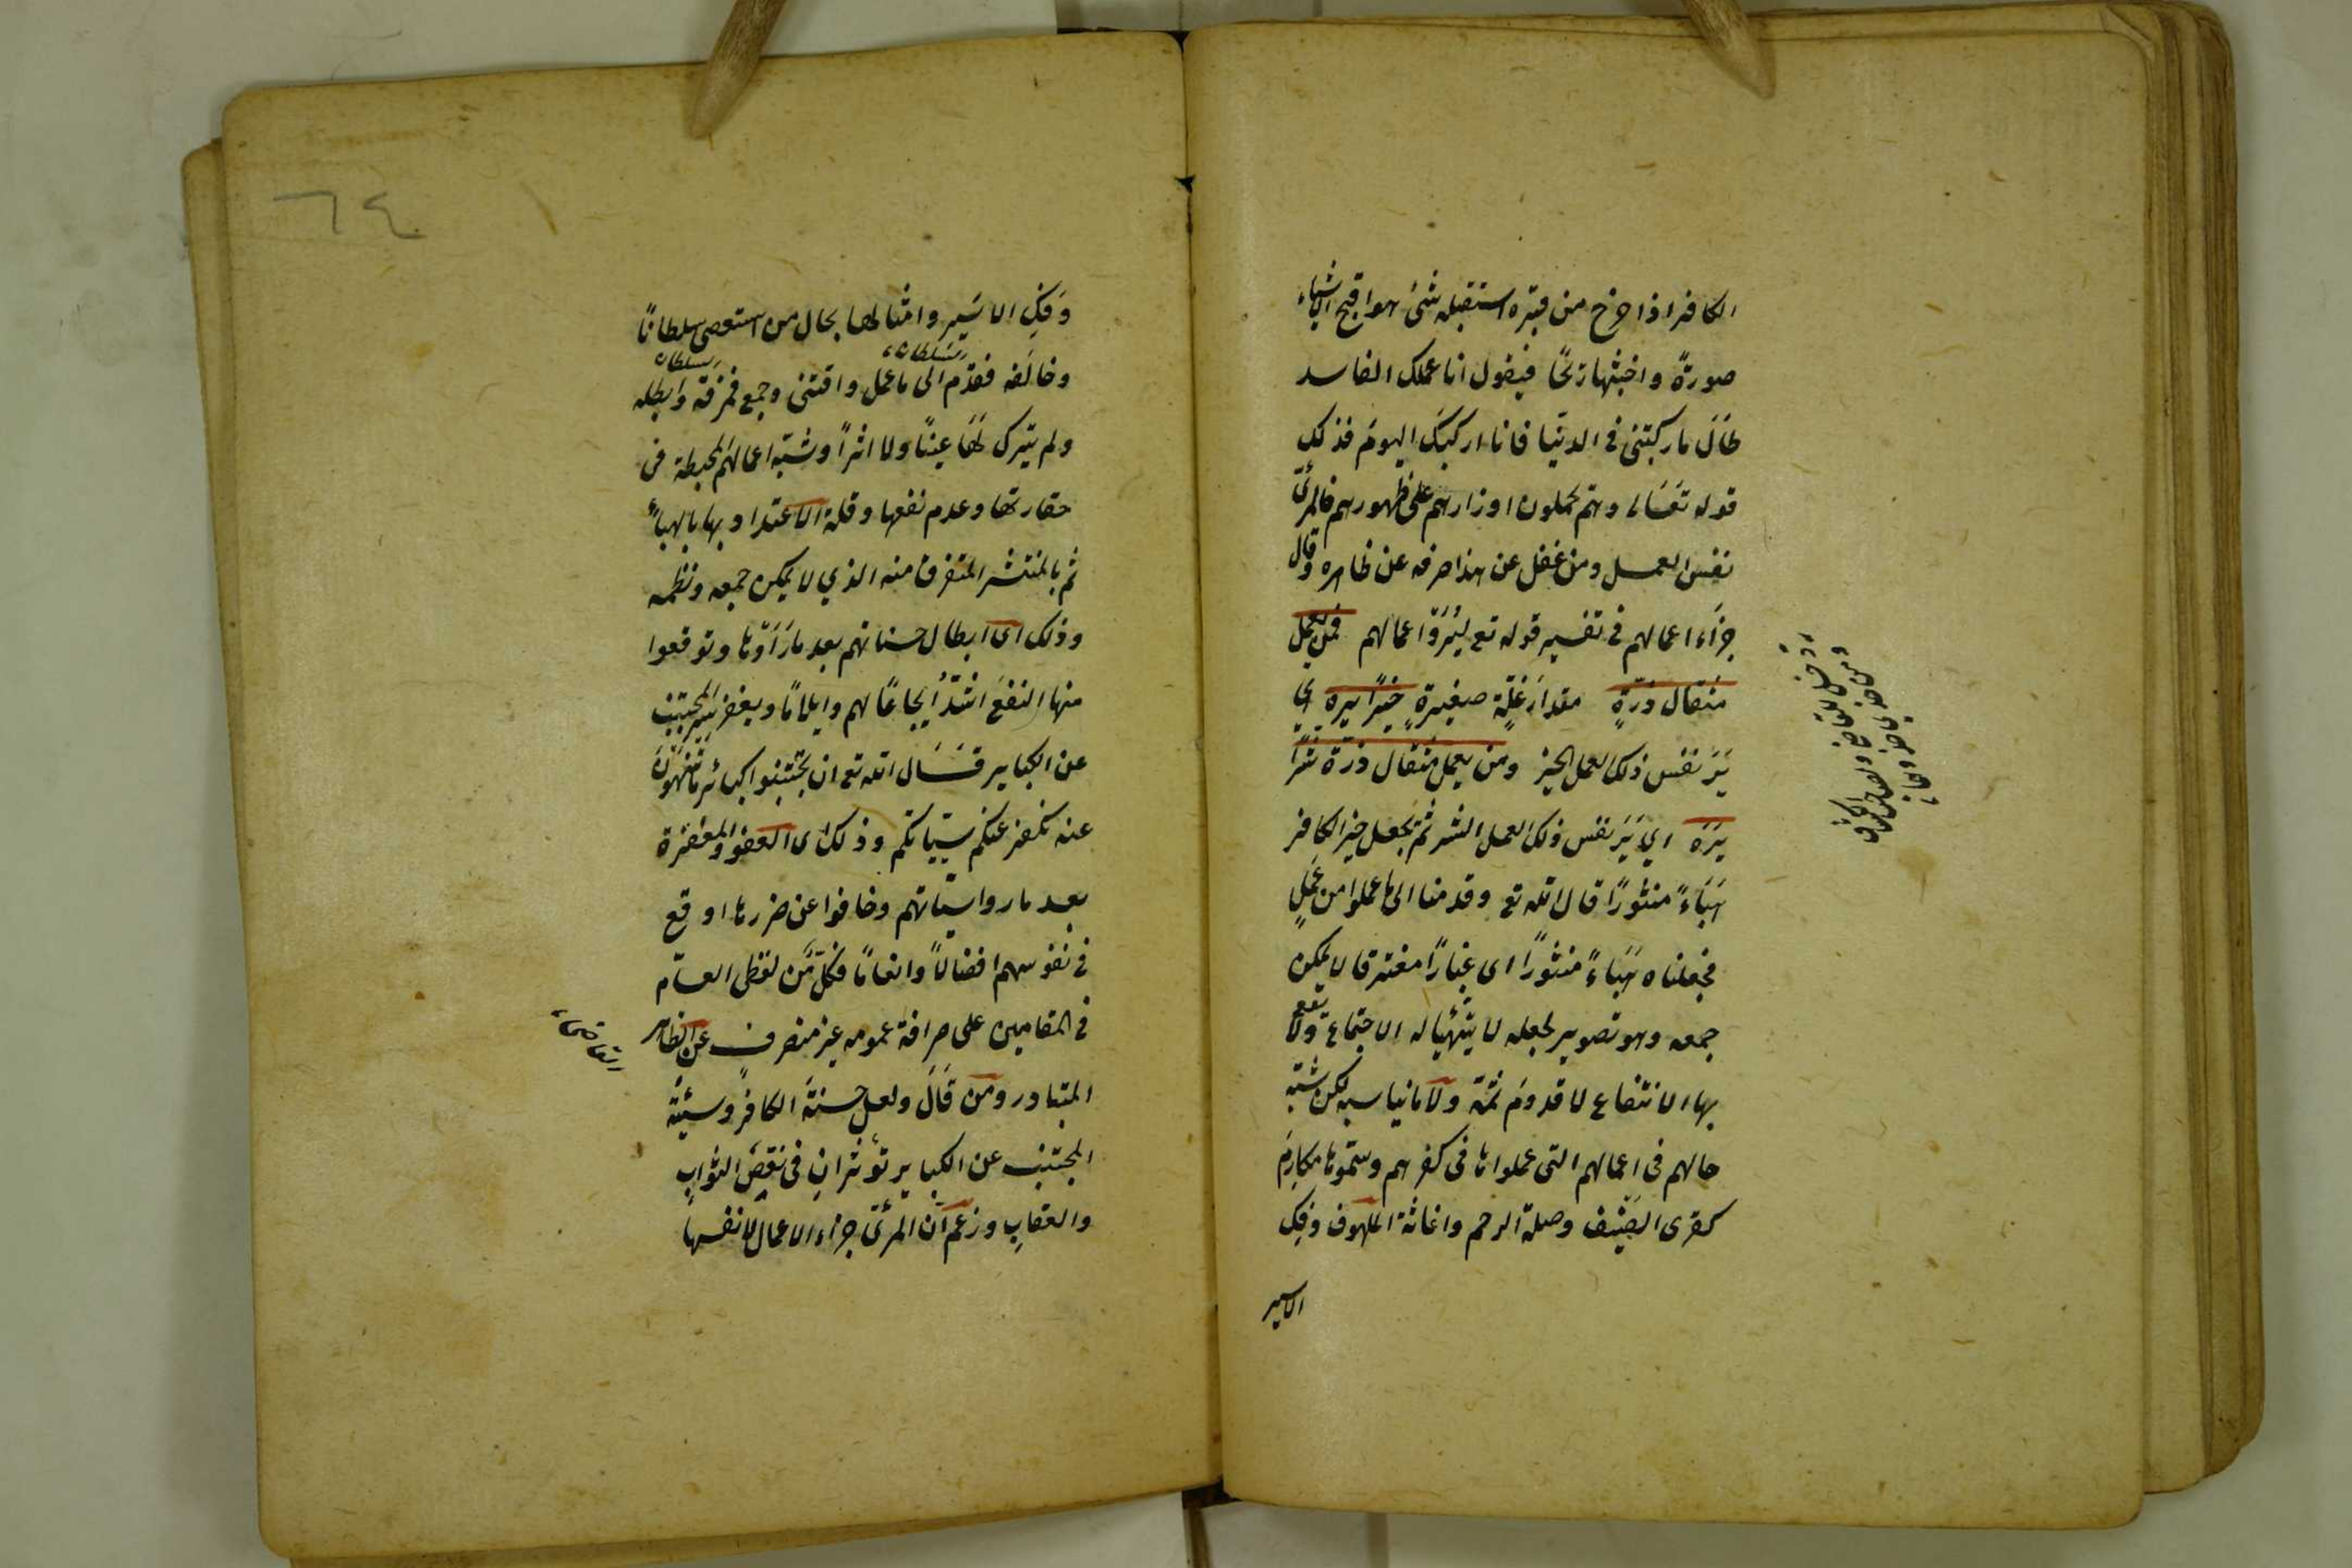 الكافر اذا خرج من قبره استقبله شئ هو اقبح الاشياء
صورةً واخبثها ريحًا فيقول انا عملك الفاسد
طَالَ ما ركبتنى فى الدنيا فانا اركبكَ اليومَ فذلك
قوله تعَالى وهم يحملون اوزارهم على ظهورهم فالمرئىّ
نفس العمل ومن غفل عن هذا صرفه عن ظاهره وقال
جزَاء اعمالهم فى تفسير قوله تع ليُرَوْا اعمالهم فمن يعمل
مثقال ذرّةٍ مقدارَ نملّة صغيرةٍ خيرًا يره اي
يَرَ نفس ذلك العمل الخير ومن يعمل مثقال ذرّة شرًّا
يَرَه اي يَرَ نفس ذلك العمل الشر ثمّ يجعل خير الكافر
هَبَاءً منثورًا قال الله تع وقدمنا الى ما عملوا من عَمَلٍ
فجعلناه هَبَاءً منثورًا اى غبارًا مفترقا لا يمكن
جمعه وهو تصوير لجعله لا يتهيّا له الاجتماع ولا يقع
بها الانتفاع لا قدومَ ثمّة ولا ما يناسبه لكن شبّه
حالهم فى اعمالهم التى عملوها فى كفرهم وسمّوها مكارمَ
كقرى الضيْف وصلة الرحم واغاثة الملهوف وفكِ
الاسير
٦٤
وَفكِ الاسَير وامثالها بحال من استعصى سلطانًا
وخالَفه فقدّم الى ما عمل واقتنى وجمع فمزقه وابطله
السلطان
السلطان
ولم يترك لهَا عينًا ولا اثراً وشبّه اعمالهم المحبطة فى
حقارتها وعدم نفعها وقلة الاعتداد بها بالهباء
ثم بالمنتشر المتفرق منه الذي لا يمكن جمعه ونظمه
وذلك اى ابطال حسناتهم بعد ما رَاَوْها وتوقعوا
منها النفعَ اشدّ ايجاعًا لهم وايلامًا ويغفر سير المجتنب
عن الكباير قَال الله تع ان تجتنبوا كبائر ما تنهون
عنه نكفر عنكم سيّياتكم وذلك اى العفو والمغفرة
بعد ما روا سيّاتهم وخافوا عن ضررها اوقع
فى نفوسهم افضالاً وانعامًا فكلّ من لفظى العاّم
فى المقامين على صرافة عمومه غير منصرف عن الظاهر
القاضى
المتبادر ومن قَالَ ولعل حسنةَ الكافر وسيئةَ
المجتنب عن الكباير تؤثران فى نقص الثواب
والعقاب وزعم ان المرئىّ جزاء الاعمال لا نفسها